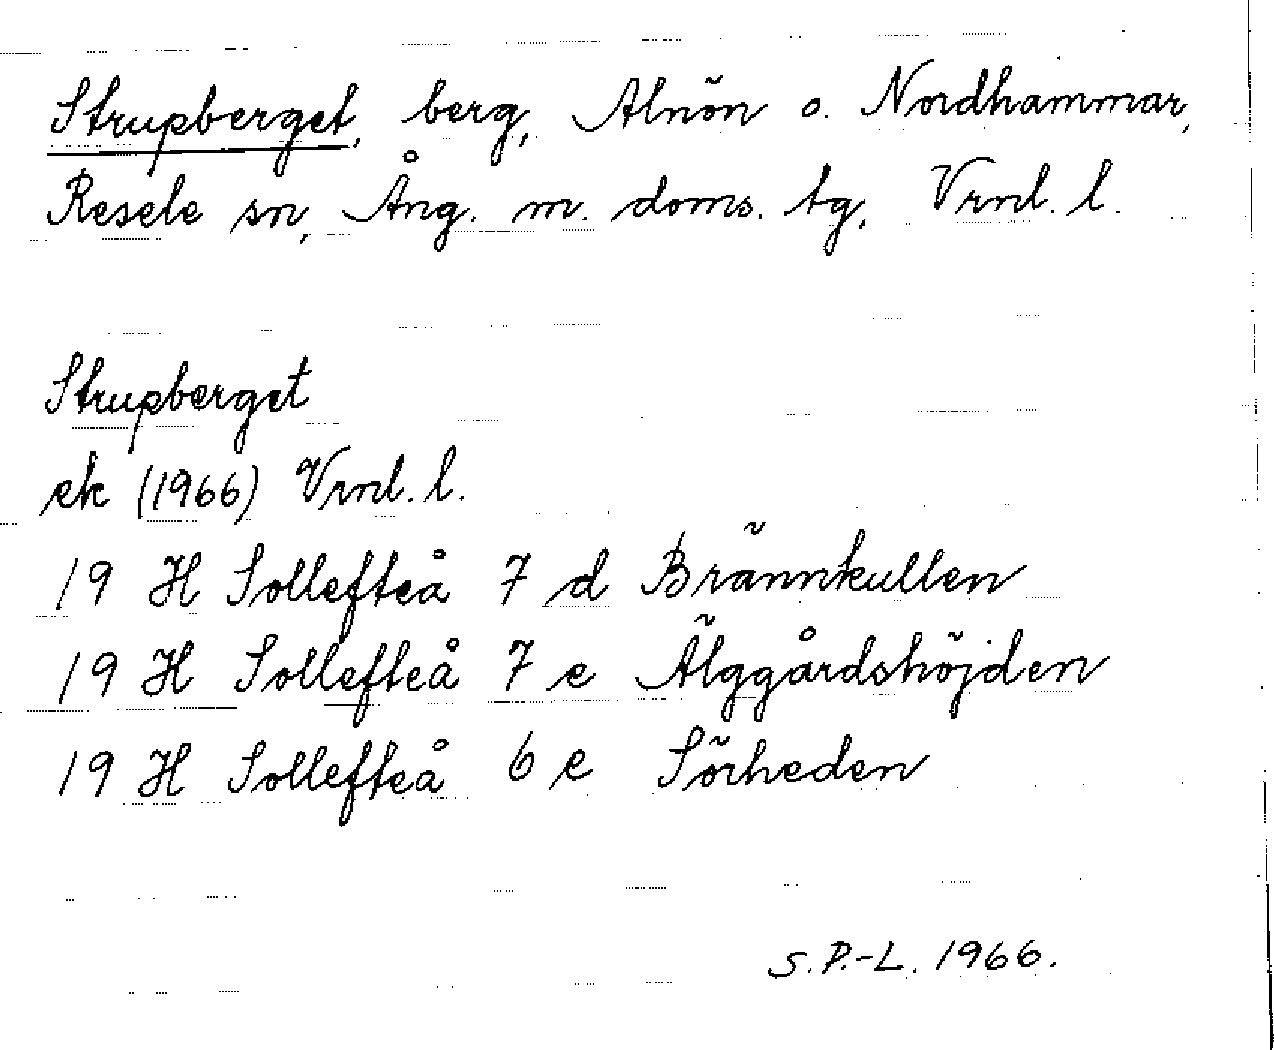 Strupberget, berg, Alnön o. Nordhammar,
Resele sn, Ång. m. doms. tg, Vrnl. l.
Strupberget
ek (1966) Vrnl. l.
19 H Sollefteå 7 d Brännkullen
19 H Sollefteå 7 e Älggårdshöjden
19 H Sollefteå 6 e Sörheden
S. P.-L. 1966.